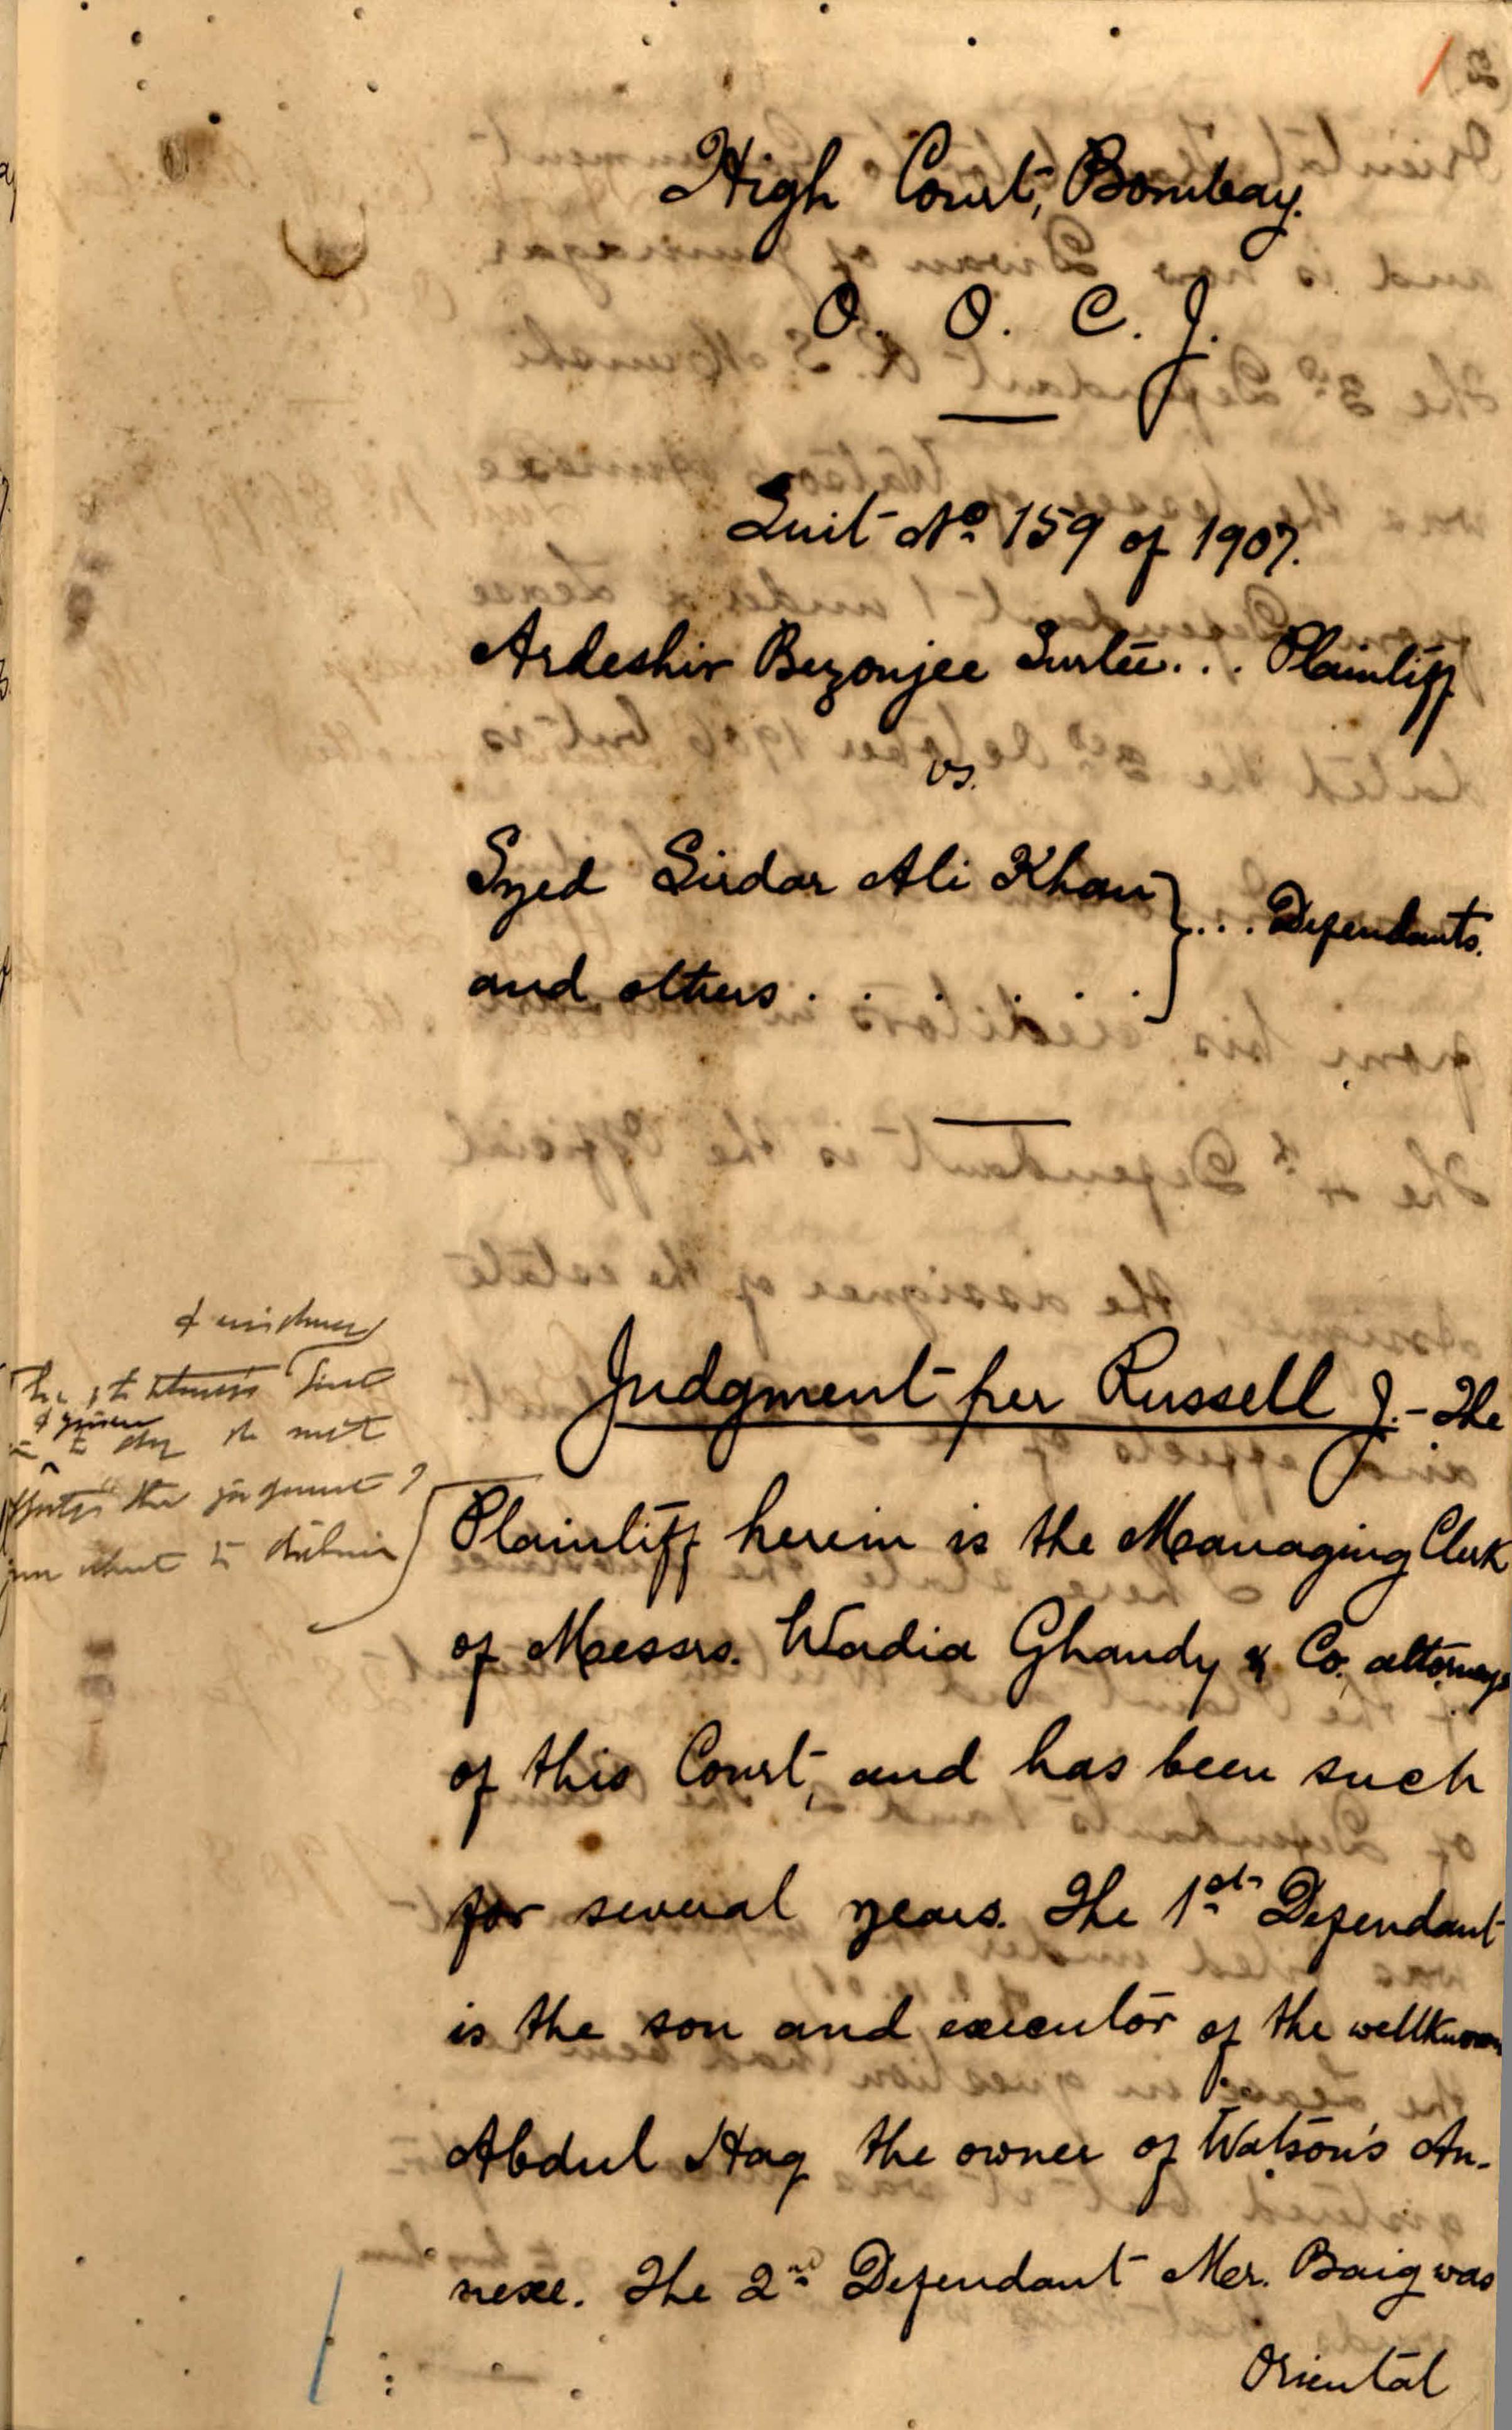 High Court, Bombay.
O. O. C. J.
Suit No 159 of 1907.
Ardeshir Bezonjee Surtee... Plaintiff
vs.
Syed Sirdar Ali Khan } ... Defendants.
and others . . . . .
Judgment per Russell J. - The
Plaintiff herein is the Managing Clerk
of Messrs. Wadia Ghandy & Co. attorneys
of this Court, and has been such
for several years. The 1st Defendant
is the son and executor of the wellknown
Abdul Haq the owner of Watson's An-
nexe. The 2nd Defendant Mr. Baig was
Oriental